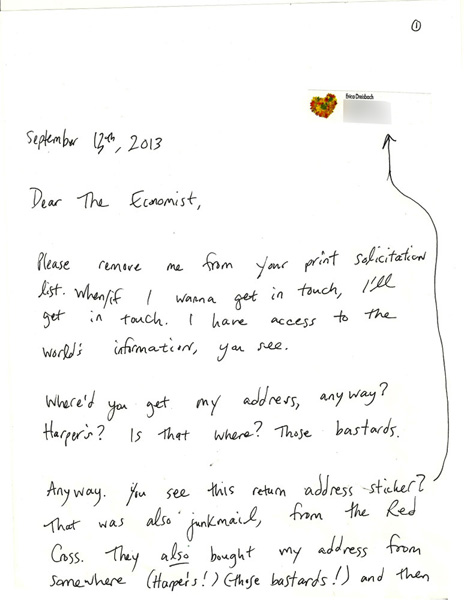 1
Erica Dreisbach
September 13th, 2013
Dear The Economist,
Please remove me from your print solicitation
list. When/if I wanna get in touch, I'll
get in touch. I have access to the
world's information, you see.
Where'd you get my address, anyway?
Harper's? Is that where? Those bastards.
Anyway. You see this return address sticker?
That was also junkmail, from the Red
Cross. They also bought my address from
somewhere (Harper's!) (those bastards!) and then